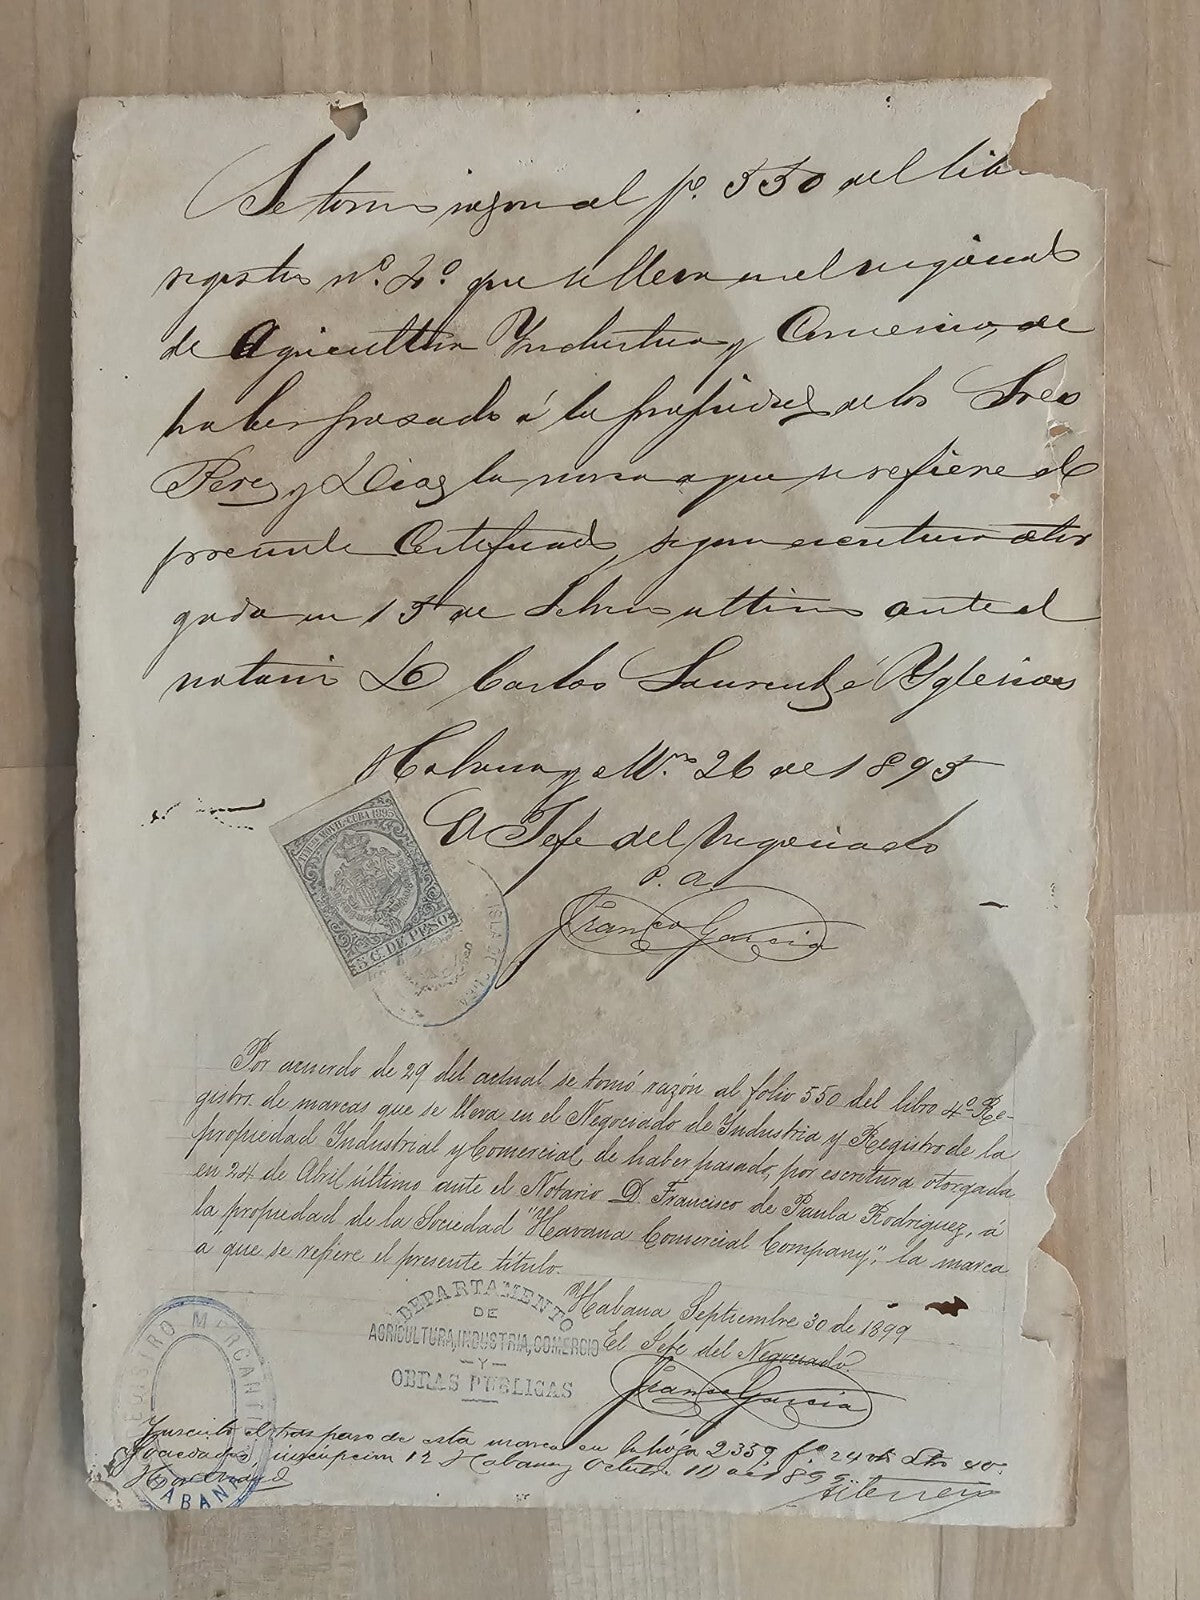 Se toma razon al fº. 550 del lib
registro nº. 4º. que se lleva en el negociado
de Agricultura Yndustria y Comercio, de
haber pasado á la propiedad de los Sres
Perez y Diaz la marca a que se refiere el
presente Certificado, segun escritura otor
gada en 15 de Febro ultimo ante el
notario Ldo Carlos Laurent é Yglesias
Habana y 26 de 1895
El Jefe del Negociado
P. A.
Franco Garcia
TIMBRE MOVIL-CUBA 1895
5 C. DE PESO
ISLA DE CUBA
Por acuerdo de 29 del actual se tomó razón al folio 550 del libro 4º Re-
gistro de marcas que se lleva en el Negociado de Industria y Registro de la
propiedad Industrial y Comercial, de haber pasado, por escritura otorgada
en 24 de Abril último ante el Notario D. Francisco de Paula Rodriguez, á
la propiedad de la Sociedad "Havana Comercial Company", la marca
á que se refiere el presente título.
Habana Septiembre 30 de 1899
El Jefe del Negociado
Franco Garcia
DEPARTAMENTO
DE
AGRICULTURA, INDUSTRIA, COMERCIO
Y
OBRAS PUBLICAS
REGISTRO MERCANTIL
HABANA
Inscrito el traspaso de esta marca en la hoja 2359 fº 24 40
Sociedades inscripcion 12 Habana y Octubre 10 de 1899